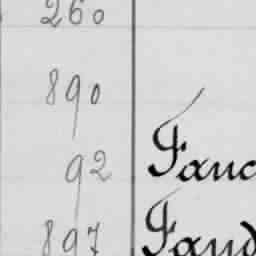 260
890
92 Fanc
897 Fand